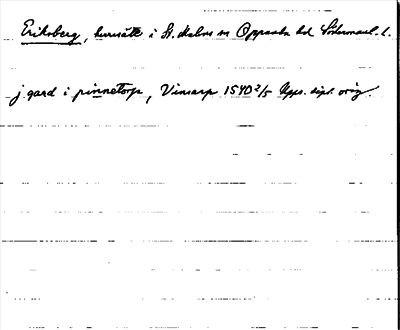 Eriksberg, hursäte i St. Malms sn Oppunda hd Södermanl. l.
j gard i pinnetorp, Vinsarp 1540 2/5 Upps. dipl. orig.